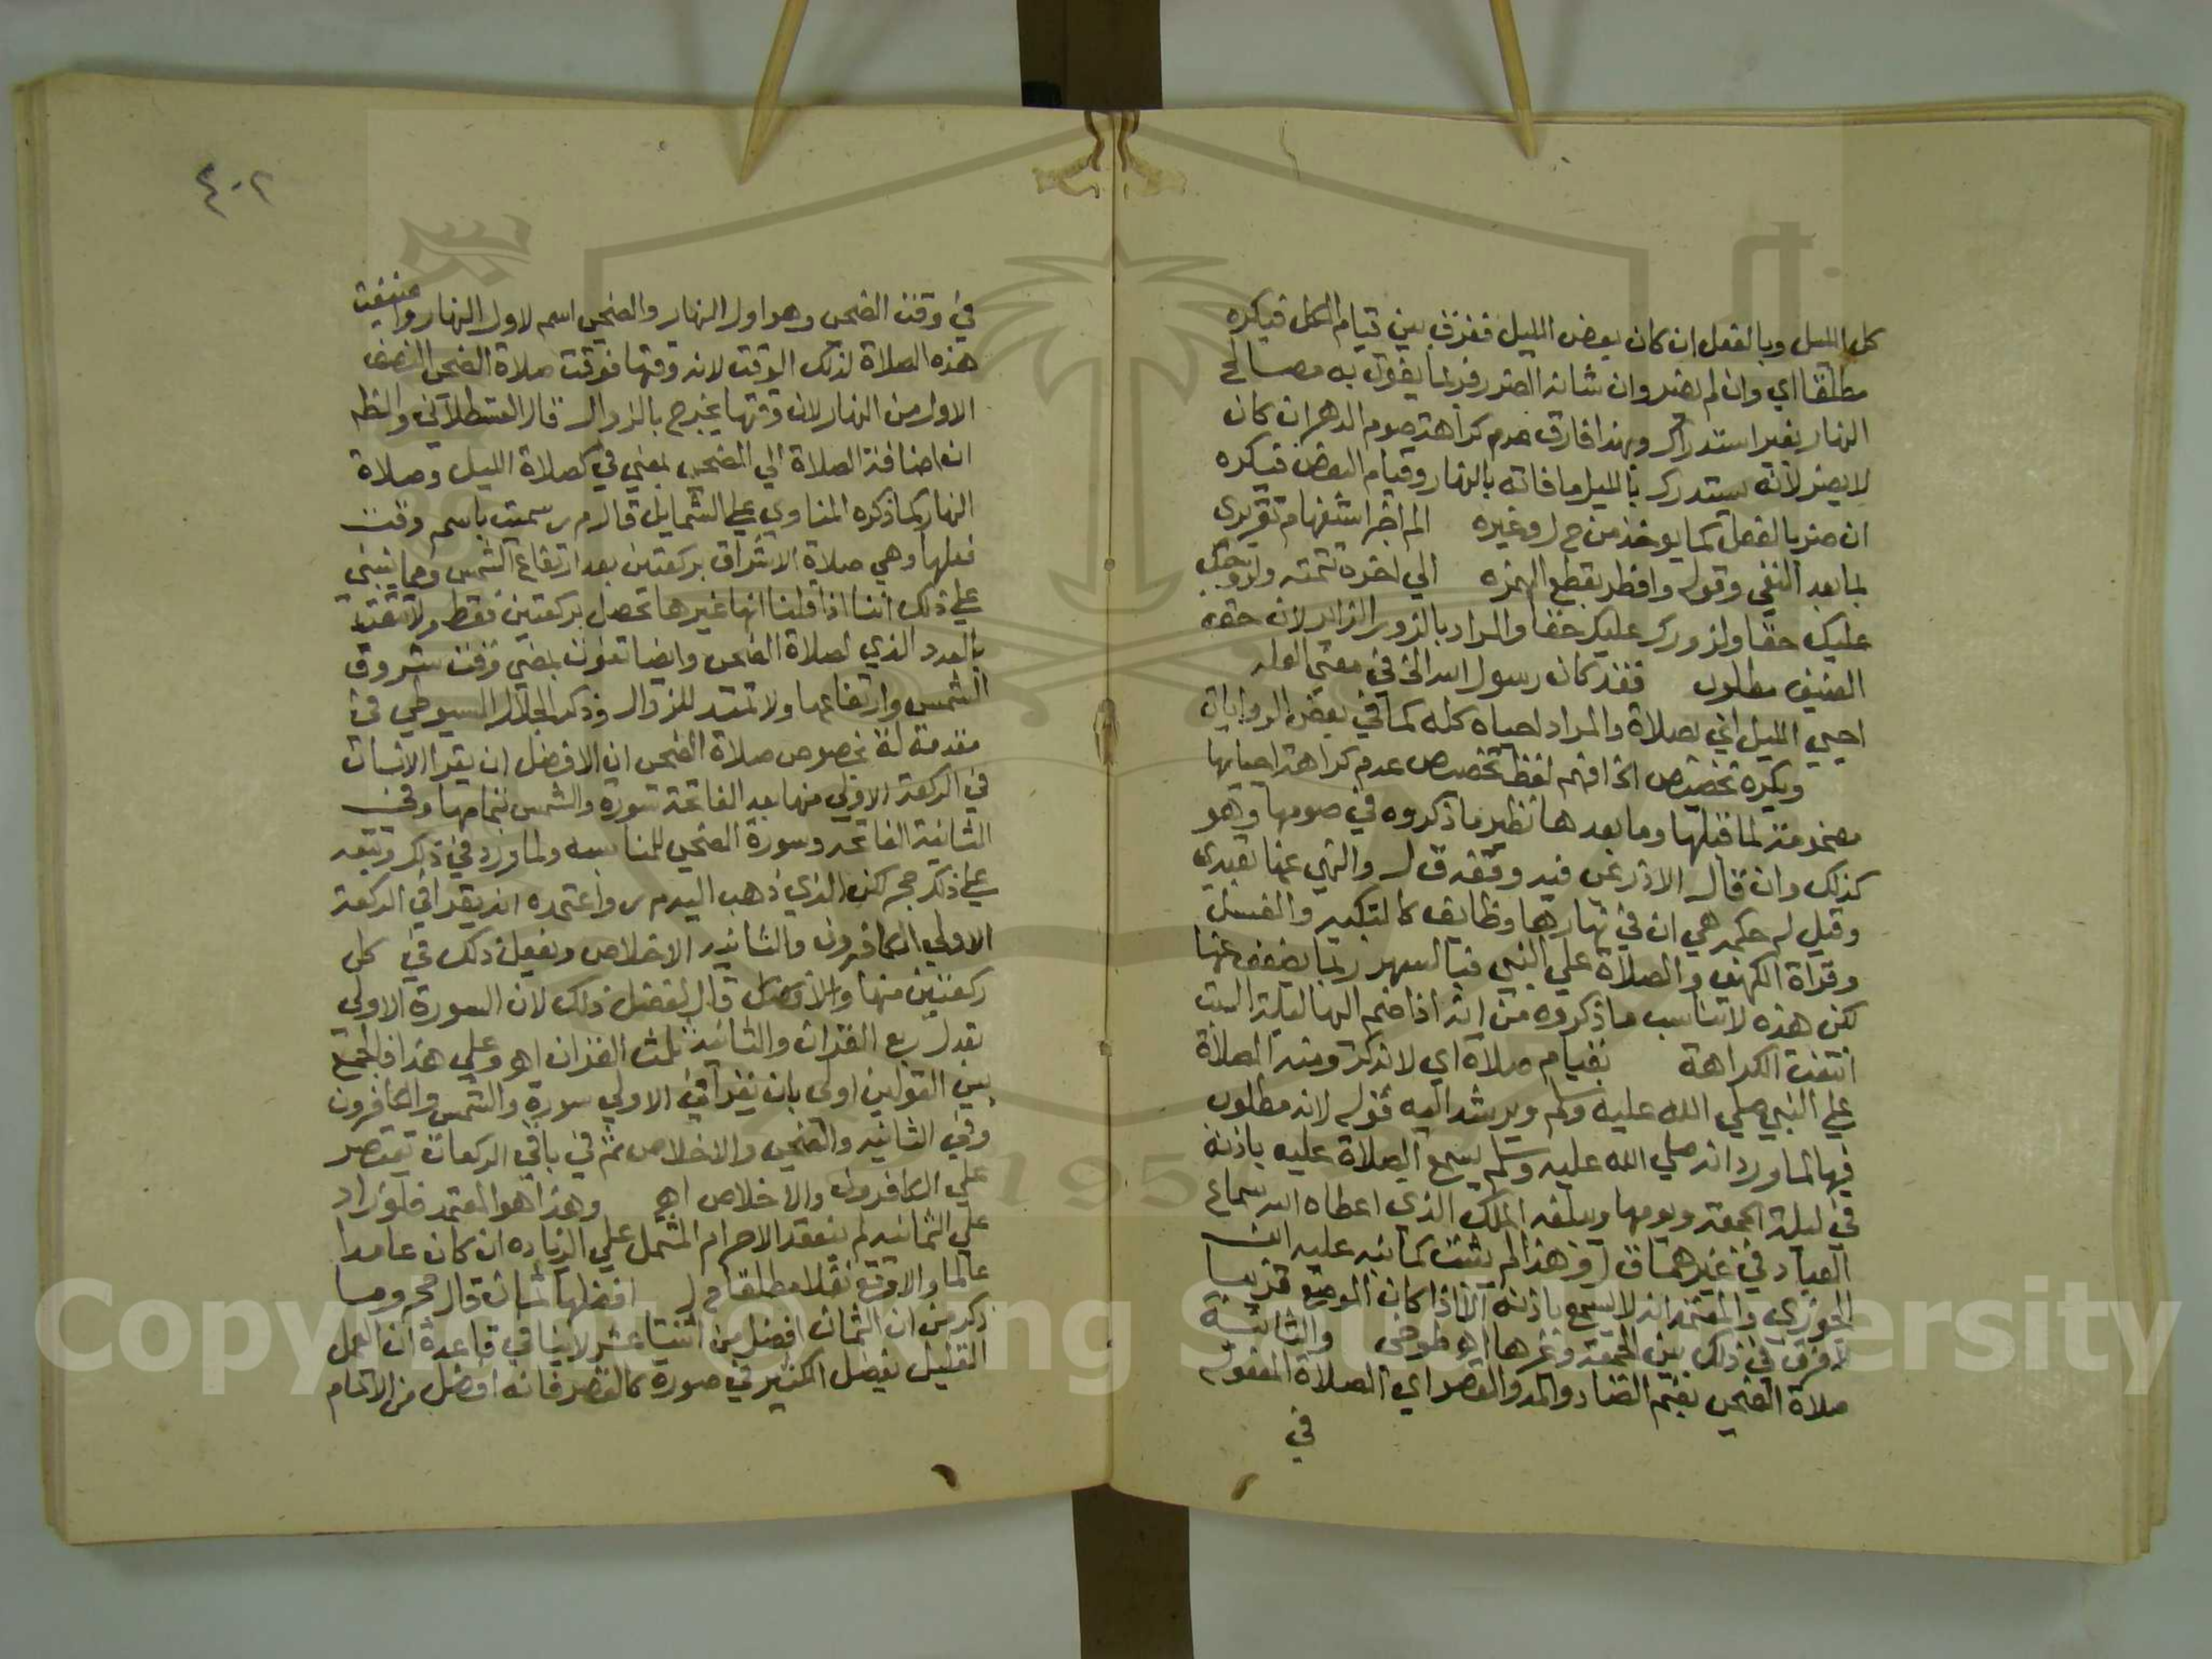 كل الليل وبالفعل ان كان بعض الليل ففرق بين قيام الكل فيكره
مطلقا اي وان لم يضر وان شانه الضرر فربما يفوت به مصالح
النهار بغير استدراك وبهذا فارق عدم كراهة صوم الدهر ان كان
لا يضر لانه يستدرك بالليل ما فاته بالنهار وقيام البعض فيكره
ان ضر بالفعل كما يوخذ من ح ل وغيره الم اخبر استفهام تقريري
لما بعد النفي وقوله وافطر بقطع الهمزه الي اخره تتمته ولزوجك
عليك حقا ولزورك عليك حقا والمراد بالزور الزاير لان حقه
الضيف مطلوب فقد كان رسول الله الخ في معني العله
احيي الليل اي بصلاة والمراد احياه كله كما في بعض الروايات
ويكره تخصيص الخ افهم لفظ تخصيص عدم كراهة احيايها
مضمومة لما قبلها وما بعدها نظير ما ذكروه في صومها وهو
كذلك وان قال الاذرعي فيه وقفه ق ل والنهي عنها تعبدي
وقيل له حكم هي ان في نهارها وظايف كالتبكير والغسل
وقراة الكهف والصلاة علي النبي فبالسهر ربما يضعف عنها
لكن هذه لا يناسب ما ذكروه من انه اذا ضم اليها ليلة السبت
انتفت الكراهة بقيام صلاة اي لا بذكر ومنه الصلاة
علي النبي صلي الله عليه وسلم ويرشد اليه قوله لانه مطلوب
فيها لما ورد انه صلي الله عليه وسلم يسمع الصلاة عليه باذنه
في ليلة الجمعة ويومها ويبلغه الملك الذي اعطاه الله سماع
العباد في غيرهما ق ل وهذا لم يثبت كما نبه عليه ابن
الجوزي والمعتمد انه لا يسمع باذنه الا اذا كان الموضع قريبا
لا فرق في ذلك بين الجمعة وغيرها اه طوخي والثالثة
صلاة الضحي بضم الضاد والمد والقصر اي الصلاة المفعوله
في
٤٠٢
في وقت الضحي وهو اول النهار والضحي اسم لاول النهار واضيفت
هذه الصلاة لذلك الوقت لانه وقتها فوقت صلاة الضحي النصف
الاول من النهار لان وقتها يخرج بالزوال قال القسطلاني والظ
ان اضافة الصلاة الي الضحي بمعني في كصلاة الليل وصلاة
النهار كما ذكره المناوي علي الشمايل قال م ر سميت باسم وقت
فعلها وهي صلاة الاشراق بركعتين بعد ارتفاع الشمس ومما ينبني
علي ذلك اننا اذا قلنا انها غيرها تحصل بركعتين فقط ولا تتقيد
بالعدد الذي لصلاة الضحي وايضا تفوت بمضي وقت شروق
الشمس وارتفاعها ولا تمتد للزوال وذكر الجلال السيوطي في
مقدمة له بخصوص صلاة الضحي ان الافضل ان يقرا الانسان
في الركعة الاولي منها بعد الفاتحة سورة والشمس بتمامها وفي
الثانية الفاتحه وسورة الضحي للمناسبه ولما ورد في ذلك وتبعه
علي ذلك حج لكن الذي ذهب اليه م ر واعتمده انه يقرا في الركعة
الاولي الكافرون والثانيه الاخلاص ويفعل ذلك في كل
ركعتين منها والافضل قال لفضل ذلك لان السورة الاولي
تعدل ربع القران والثانية ثلث القران اه وعلي هذا فالجمع
بين القولين اولي بان يقرا في الاولي سورة والشمس والكافرون
وفي الثانيه والضحي والاخلاص ثم في باقي الركعات يقتصر
علي الكافرون والاخلاص اه وهذا هو المعتمد فلو زاد
علي الثمانيه لم ينعقد الاحرام المشتمل علي الزياده ان كان عامدا
عالما والا وقع نفلا مطلقا م ر افضلها ثمان قال حج وما
ذكر من ان الثمان افضل من اثنتا عشر لا ينافي قاعدة ان العمل
القليل يفضل الكثير في صورة كالقصر فانه افضل من الاتمام